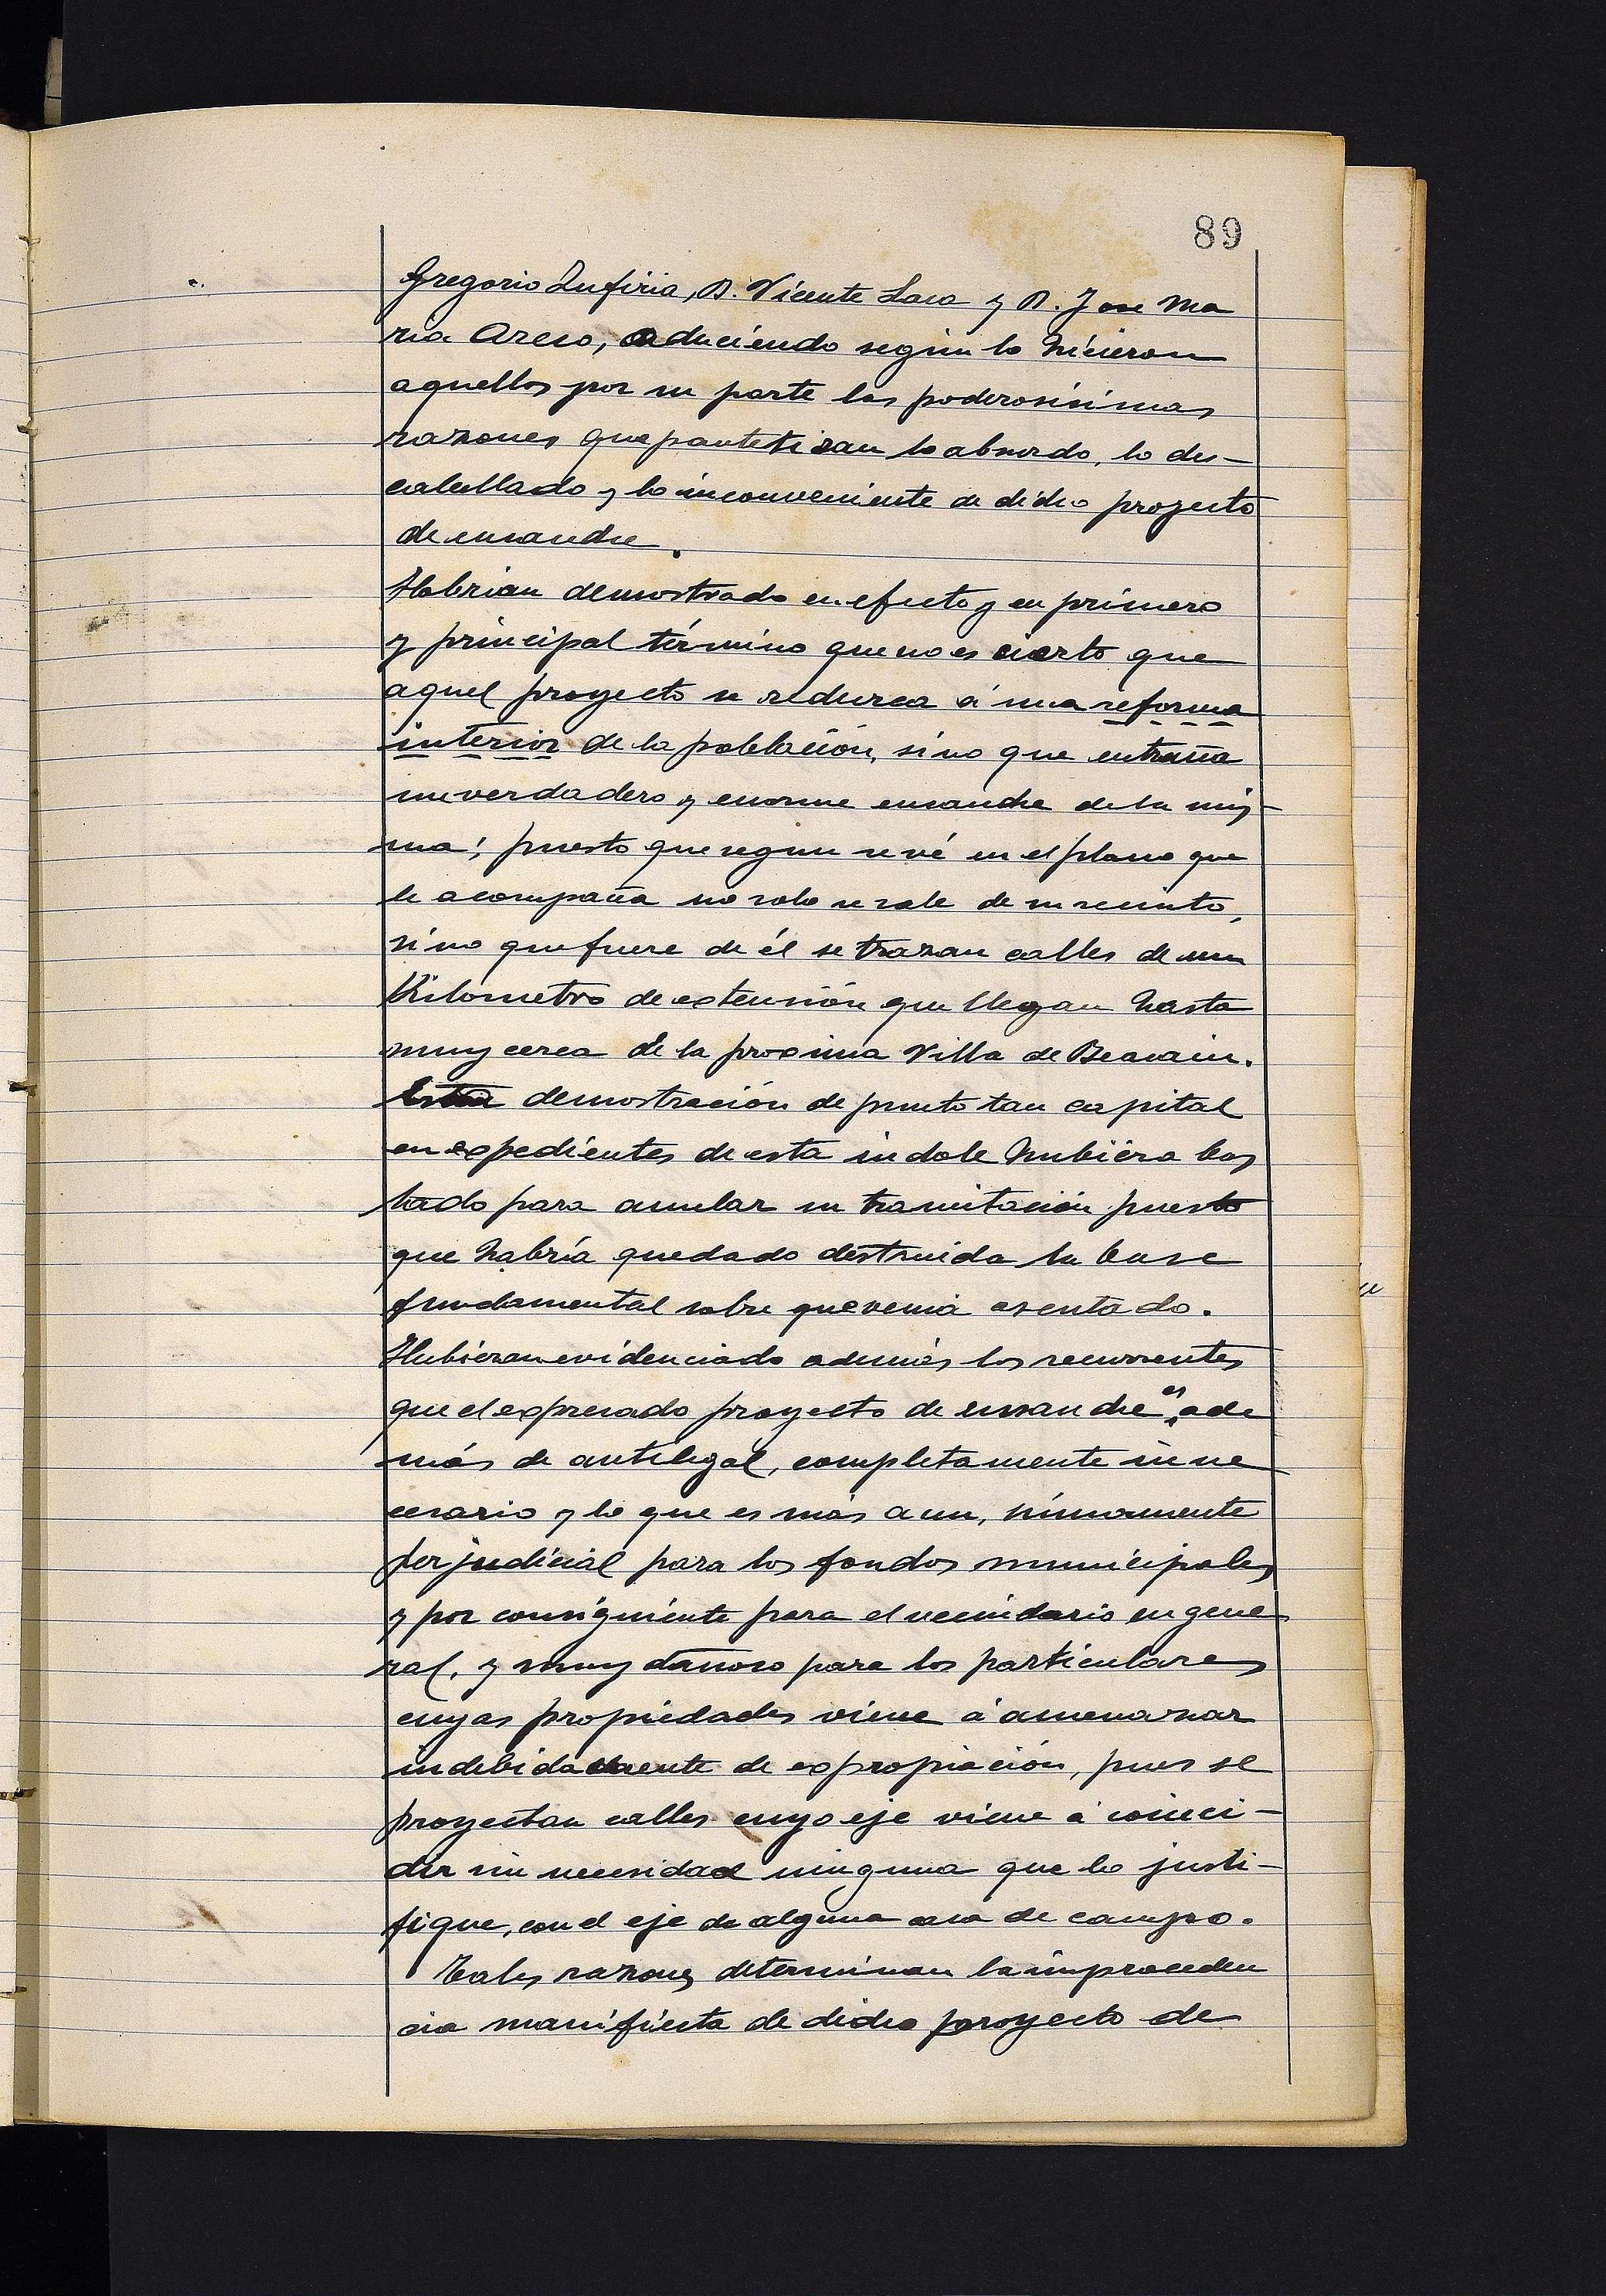 89
Gregorio Zufiria, D. Vicente Lasa y D. Jose Ma
ria Areso, aduciendo según lo hicieron
aquellos por su parte las poderosísimas
razones que patentizan lo absurdo, lo des-
cabellado y lo inconveniente de dicho proyecto
de ensanche.
Habrían demostrado en efecto y en primero
y principal término que no es cierto que
aquel proyecto se reduzca á una reforma
interior de la población, sino que entraña
un verdadero y enorme ensanche de la mis-
ma; puesto que segun se vé en el plano que
le acompaña no solo se sale de su recinto,
sino que fuera de él se trazan calles de un
Kilometro de extensión que llegan hasta
muy cerca de la proxima Villa de Beasain.
Esta demostración de punto tan capital
en expedientes de esta indole hubiera bas
tado para anular su tramitación puesto
que habría quedado destruida la base
fundamental sobre que venia asentado.
Hubieran evidenciado además los recurrentes
que el expresado proyecto de ensanche es, ade
más de antilegal, completamente inne
cesario y lo que es más aun, sumamente
perjudicial para los fondos municipales
y por consiguiente para el vecindario en gene
ral, y muy dañoso para los particulares
cuyas propiedades viene á amenazar
indebidamente de expropiación, pues se
proyectan calles cuyo eje viene á coinci-
dir sin necesidad ninguna que lo justi-
fique, con el eje de alguna casa de campo.
Tales razones determinan la improceden
cia manifiesta de dicho proyecto de